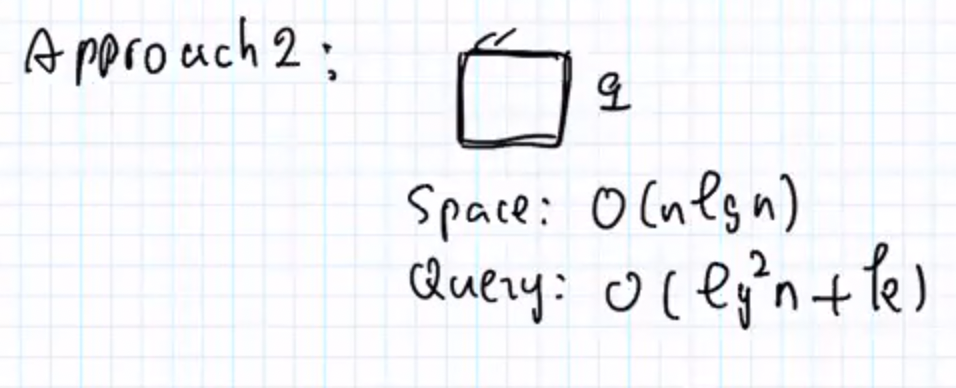 Approach 2:
q
Space: O(n lg n)
Query: O(lg²n + k)